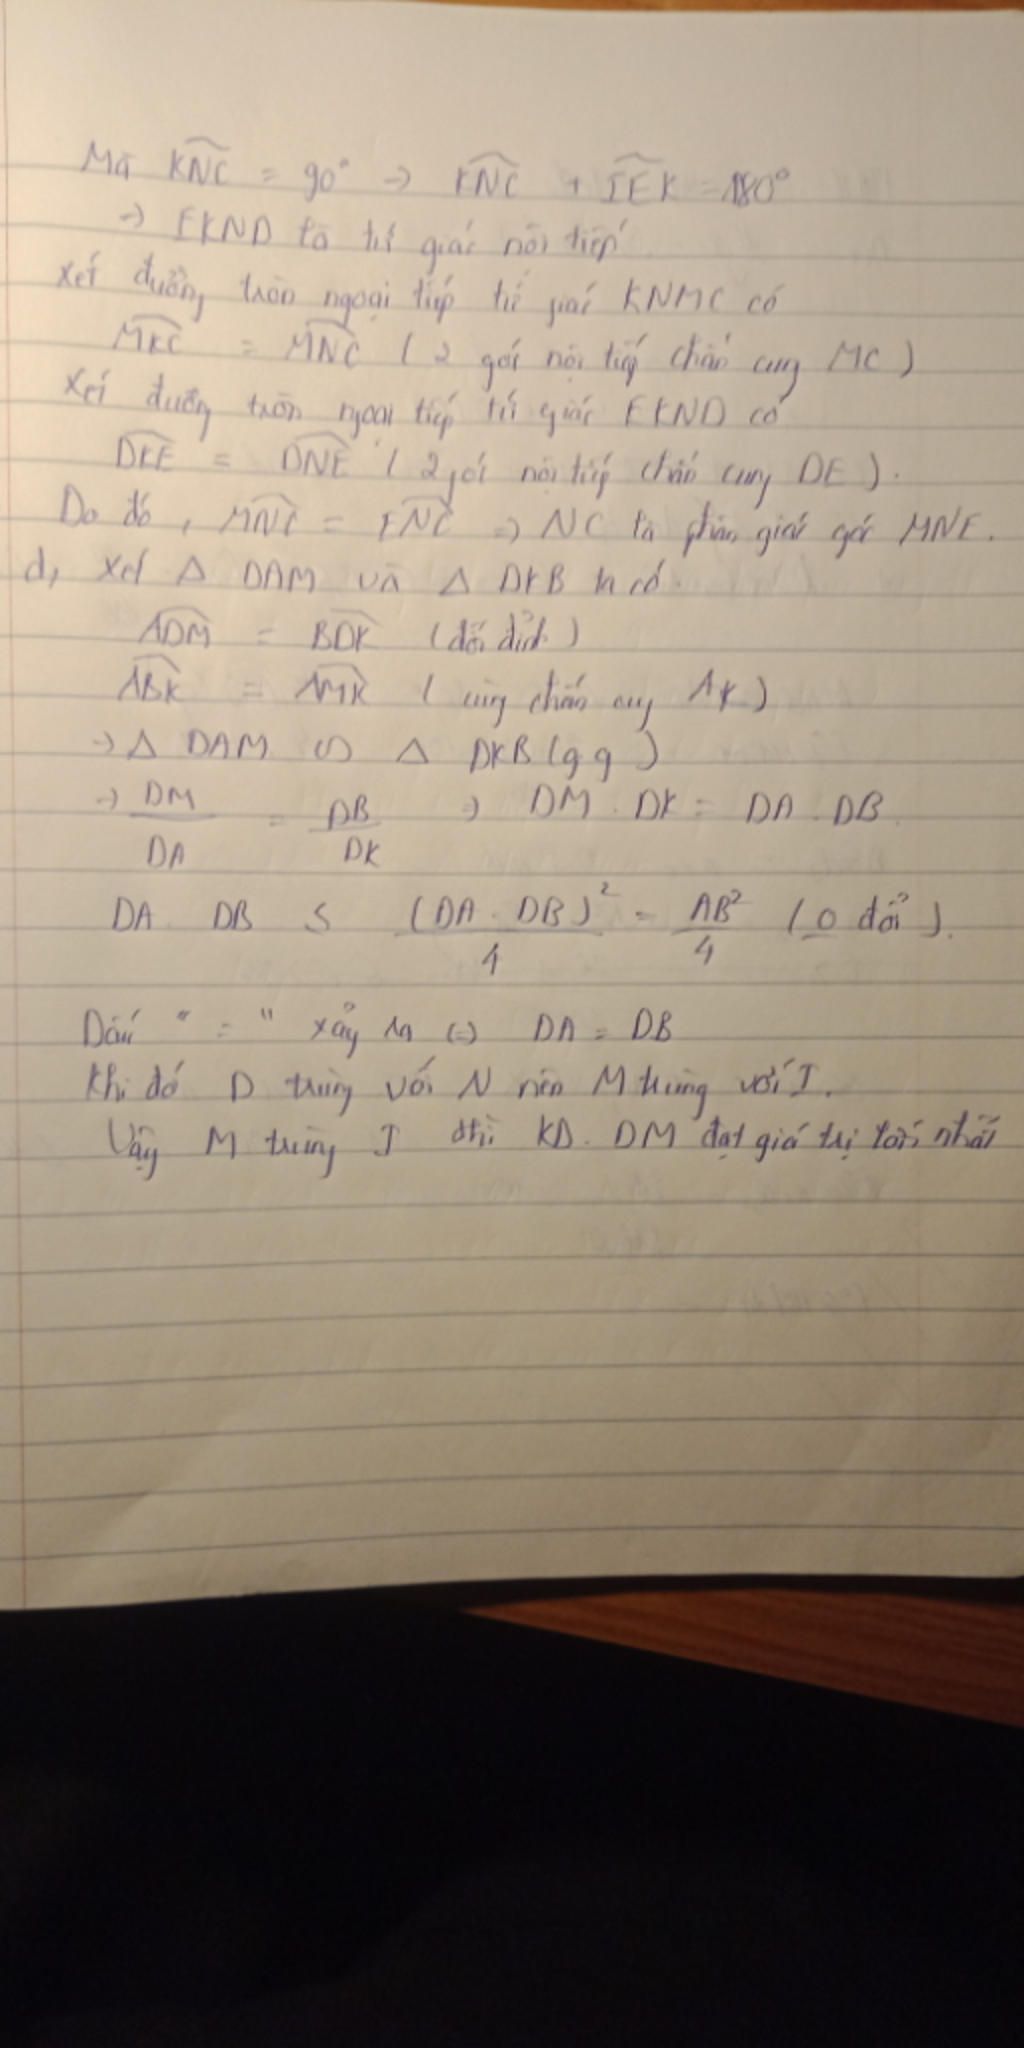 Mà KNC = 90° → KNC + IEK = 180°
→ EKND là tứ giác nội tiếp
Xét đường tròn ngoại tiếp tứ giác KNMC có
MKC = MNC ( 2 góc nội tiếp chắn cung MC )
Xét đường tròn ngoại tiếp tứ giác EKND có
DKE = DNE ( 2 góc nội tiếp chắn cung DE ) .
Do đó , MNC = ENC => NC là phân giác góc MNE .
d, Xét Δ DAM và Δ DKB ta có .
ADM = BDK ( đối đỉnh )
ABK = AMK ( cùng chắn cung AK )
→ Δ DAM ∽ Δ DKB ( g g )
→ DM/DA = DB/DK => DM . DK = DA . DB .
DA DB ≤ (DA . DB)²/4 = AB²/4 ( 0 đổi ) .
Dấu " = " xảy ra (=) DA = DB
Khi đó D trùng với N nên M trùng với I .
Vậy M trùng I thì KD . DM đạt giá trị lớn nhất